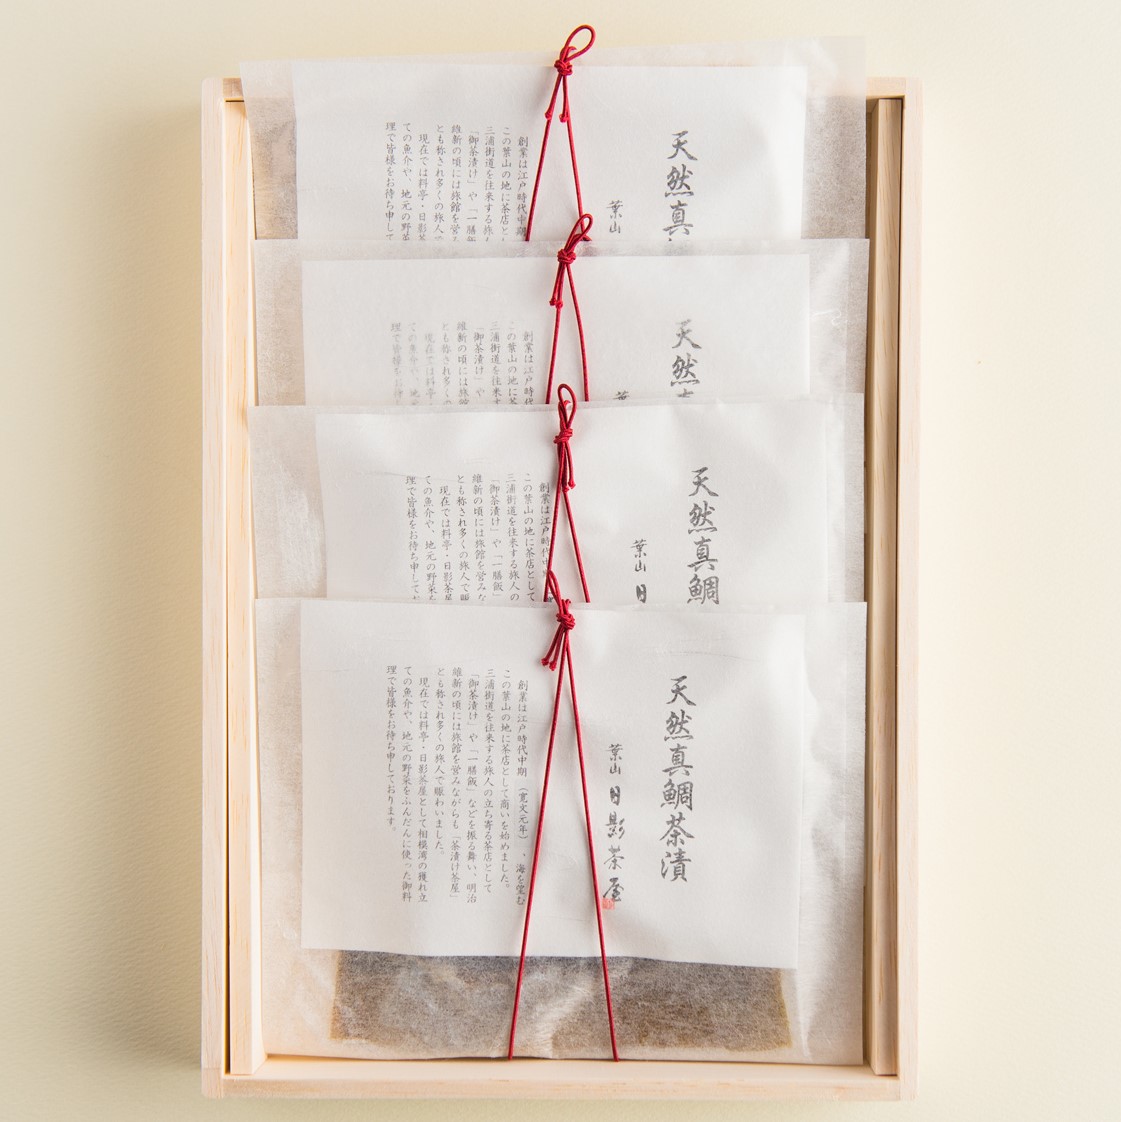 天然真
葉山
創業は江戸時代中期
この葉山の地に茶店とし
三浦街道を往来する旅
「御茶漬け」や「一膳
維新の頃には旅館を営み
とも称され多くの旅人で
現在では料亭・日影茶
ての魚介や、地元の野菜
理で皆様をお待ち申して
天然
創業は江戸時代
この葉山の地に
三浦街道を往来す
「御茶漬け」や
維新の頃には旅館
とも称され多くの
現在では料亭・
ての魚介や、地元
理で皆様をお待
天然真鯛
葉山 日
創業は江戸時代中
この葉山の地に茶店として
三浦街道を往来する旅人の
「御茶漬け」や「一膳飯」
維新の頃には旅館を営みな
とも称され多くの旅人で賑
現在では料亭・日影茶屋
ての魚介や、地元の野菜を
理で皆様をお待ち申してお
天然真鯛茶漬
葉山 日影茶屋
創業は江戸時代中期(寛文元年)、海を望む
この葉山の地に茶店として商いを始めました。
三浦街道を往来する旅人の立ち寄る茶店として
「御茶漬け」や「一膳飯」などを振る舞い、明治
維新の頃には旅館を営みながらも「茶漬け茶屋」
とも称され多くの旅人で賑わいました。
現在では料亭・日影茶屋として相模湾の獲れ立
ての魚介や、地元の野菜をふんだんに使った御料
理で皆様をお待ち申しております。